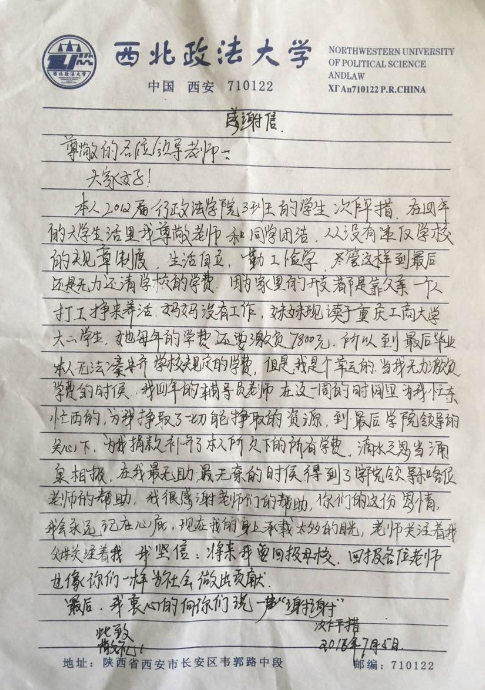 西北政法大学
NORTHWESTERN UNIVERSITY
OF POLITICAL SCIENCE
ANDLAW
中国 西安 710122
XI'An710122 P.R.CHINA
感谢信
尊敬的各位领导老师:
大家好!
本人2012届行政法学院3班的学生次仁措.在四年
的大学生活里我尊敬老师和同学团结,从没有违反学校
的规章制度,生活自立,勤工俭学,尽管这样到最后
还是无力还清学校的学费.因为家里的开支都是靠父亲一个人
打工挣来养活,妈妈没有工作,妹妹现读于重庆工商大学
大二学生,她每年的学费还要缴负7800元,所以到最后毕业
本人无法凑齐学校规定的学费,但是我是个幸运的,当我无力缴负
学费的时候,我四年的辅导员老师在这一周的时间里为我忙东
忙西的,为我挣取了一切能挣取的资源,到最后学院领导的
关心下,为我捐款补齐了本人所欠下的所有学费.滴水之恩当涌
泉相报,在我最无助最无奈的时候得到了学院领导和各位
老师的帮助,我很感谢老师们的帮助,你们的这份恩情,
我会永远记在心底,现在我的身上承载太多的目光,老师关注着我
父母关注着我 我坚信:将来我会回报母校,回报各位老师
也像你们一样为社会做出贡献.
最后,我衷心的向你们说一声"谢谢"
此致
敬礼!
2016年7月5日.
地址:陕西省西安市长安区韦郭路中段 邮编:710122